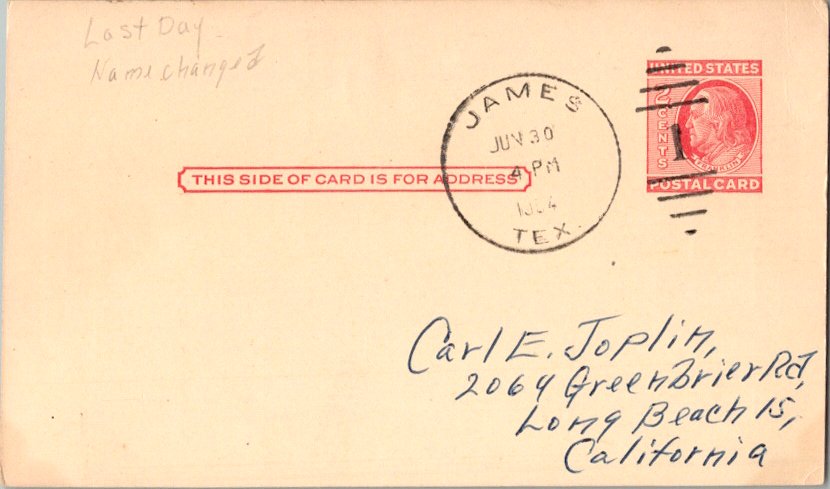 Last Day
Name changed
JAMES
JUN 30
4 PM
TEX.
1
UNITED STATES
2 CENTS
FRANKLIN
POSTAL CARD
THIS SIDE OF CARD IS FOR ADDRESS
Carl E. Joplin,
2064 Greenbrier Rd,
Long Beach 15,
California